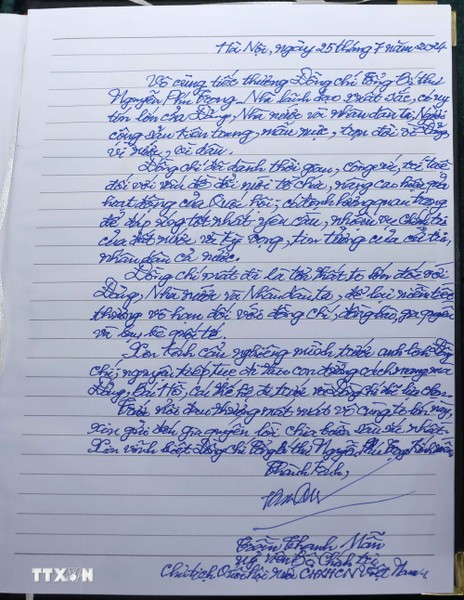 Hà Nội, ngày 25 tháng 7 năm 2024
Vô cùng tiếc thương Đồng chí Tổng Bí thư
Nguyễn Phú Trọng, Nhà lãnh đạo xuất sắc, có uy
tín lớn của Đảng, Nhà nước và nhân dân ta, Người
cộng sản kiên trung, mẫu mực, trọn đời vì Đảng,
vì nước, vì dân.
Đồng chí đã dành thời gian, công sức, trí tuệ
đối với vấn đề đổi mới tổ chức, nâng cao hiệu quả
hoạt động của Quốc hội; quan trọng
để đáp ứng tốt nhất yêu cầu, nhiệm vụ
của đất nước và kỳ vọng, tin tưởng của cử tri,
nhân dân cả nước.
Đồng chí mất đi là tổn thất to lớn đối với
Đảng, Nhà nước và Nhân dân ta, để lại niềm tiếc
thương vô hạn đối với đồng chí, đồng bào, gia quyến
và bạn bè quốc tế.
Xin thành kính nghiêng mình trước anh linh Đồng
chí; nguyện tiếp tục đi theo con đường cách mạng mà
Đảng, Bác Hồ, các thế hệ đi trước và Đồng chí đã lựa chọn.
Trước nỗi đau thương mất mát vô cùng to lớn này,
xin gửi đến gia quyến lời chia buồn sâu sắc nhất.
Xin vĩnh biệt Đồng chí Tổng Bí thư Nguyễn Phú Trọng
Thành kính,
Trần Thanh Mẫn
Uỷ viên Bộ Chính trị
Chủ tịch Quốc hội nước CHXHCN Việt Nam
TTXVN